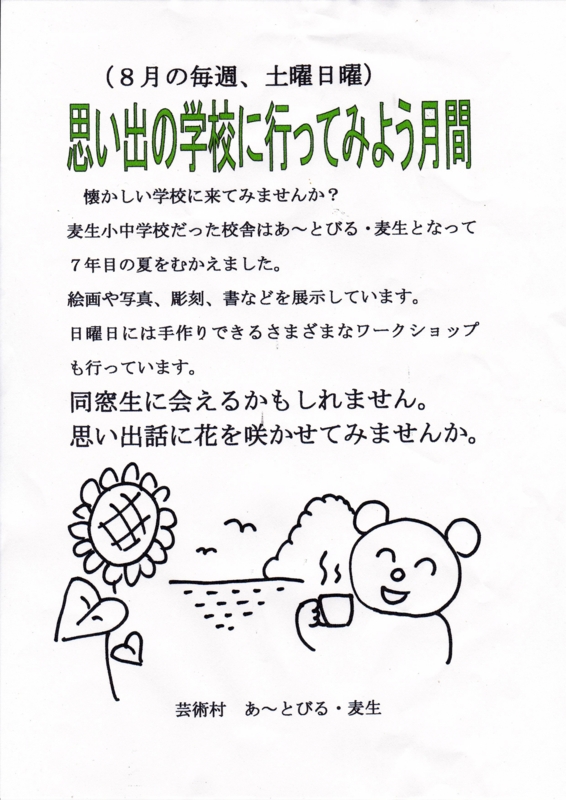 （８月の毎週、土曜日曜）
思い出の学校に行ってみよう月間
懐かしい学校に来てみませんか？
麦生小中学校だった校舎はあ～とびる・麦生となって
７年目の夏をむかえました。
絵画や写真、彫刻、書などを展示しています。
日曜日には手作りできるさまざまなワークショップ
も行っています。
同窓生に会えるかもしれません。
思い出話に花を咲かせてみませんか。
芸術村　あ～とびる・麦生